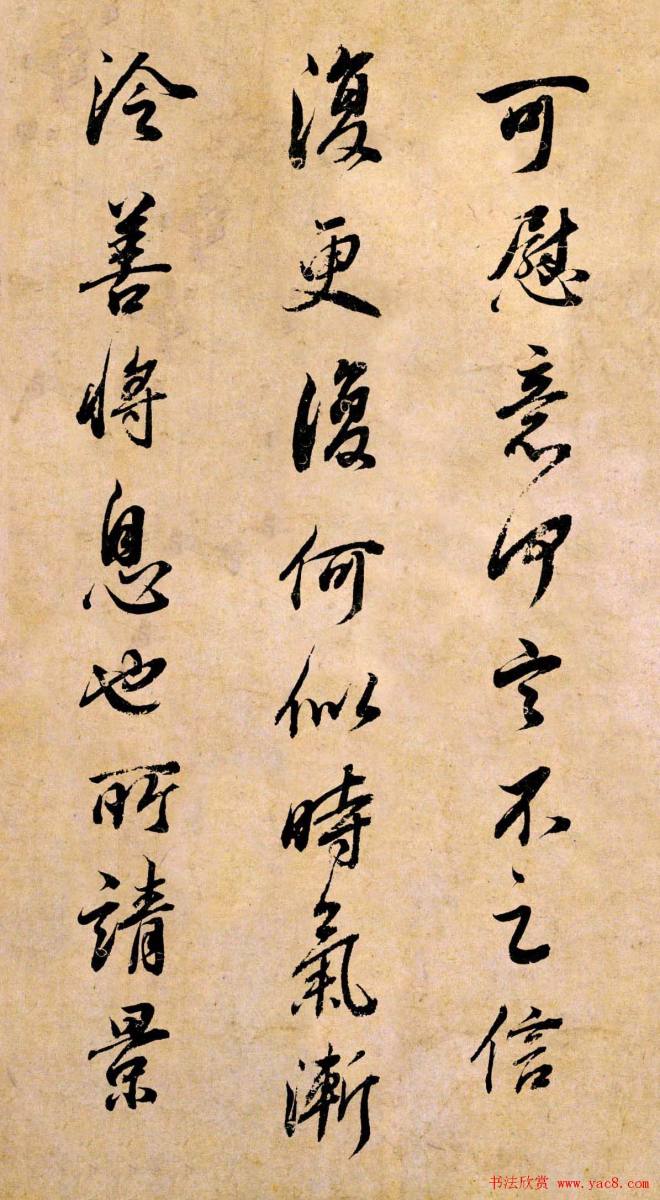 可慰意何言不之信
復更復何似時氣漸
冷善將息也所請景
书法欣赏 www.yac8.com